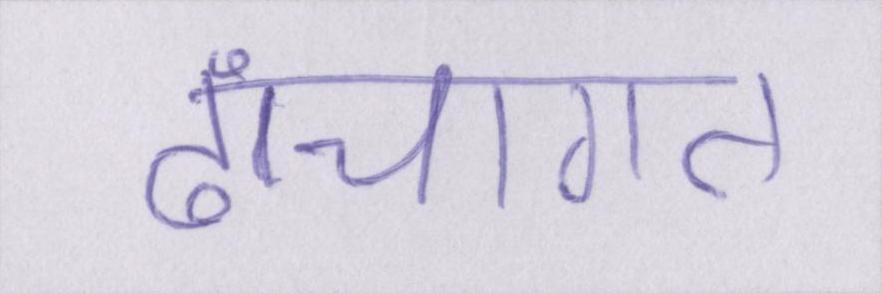 ढाँचागत